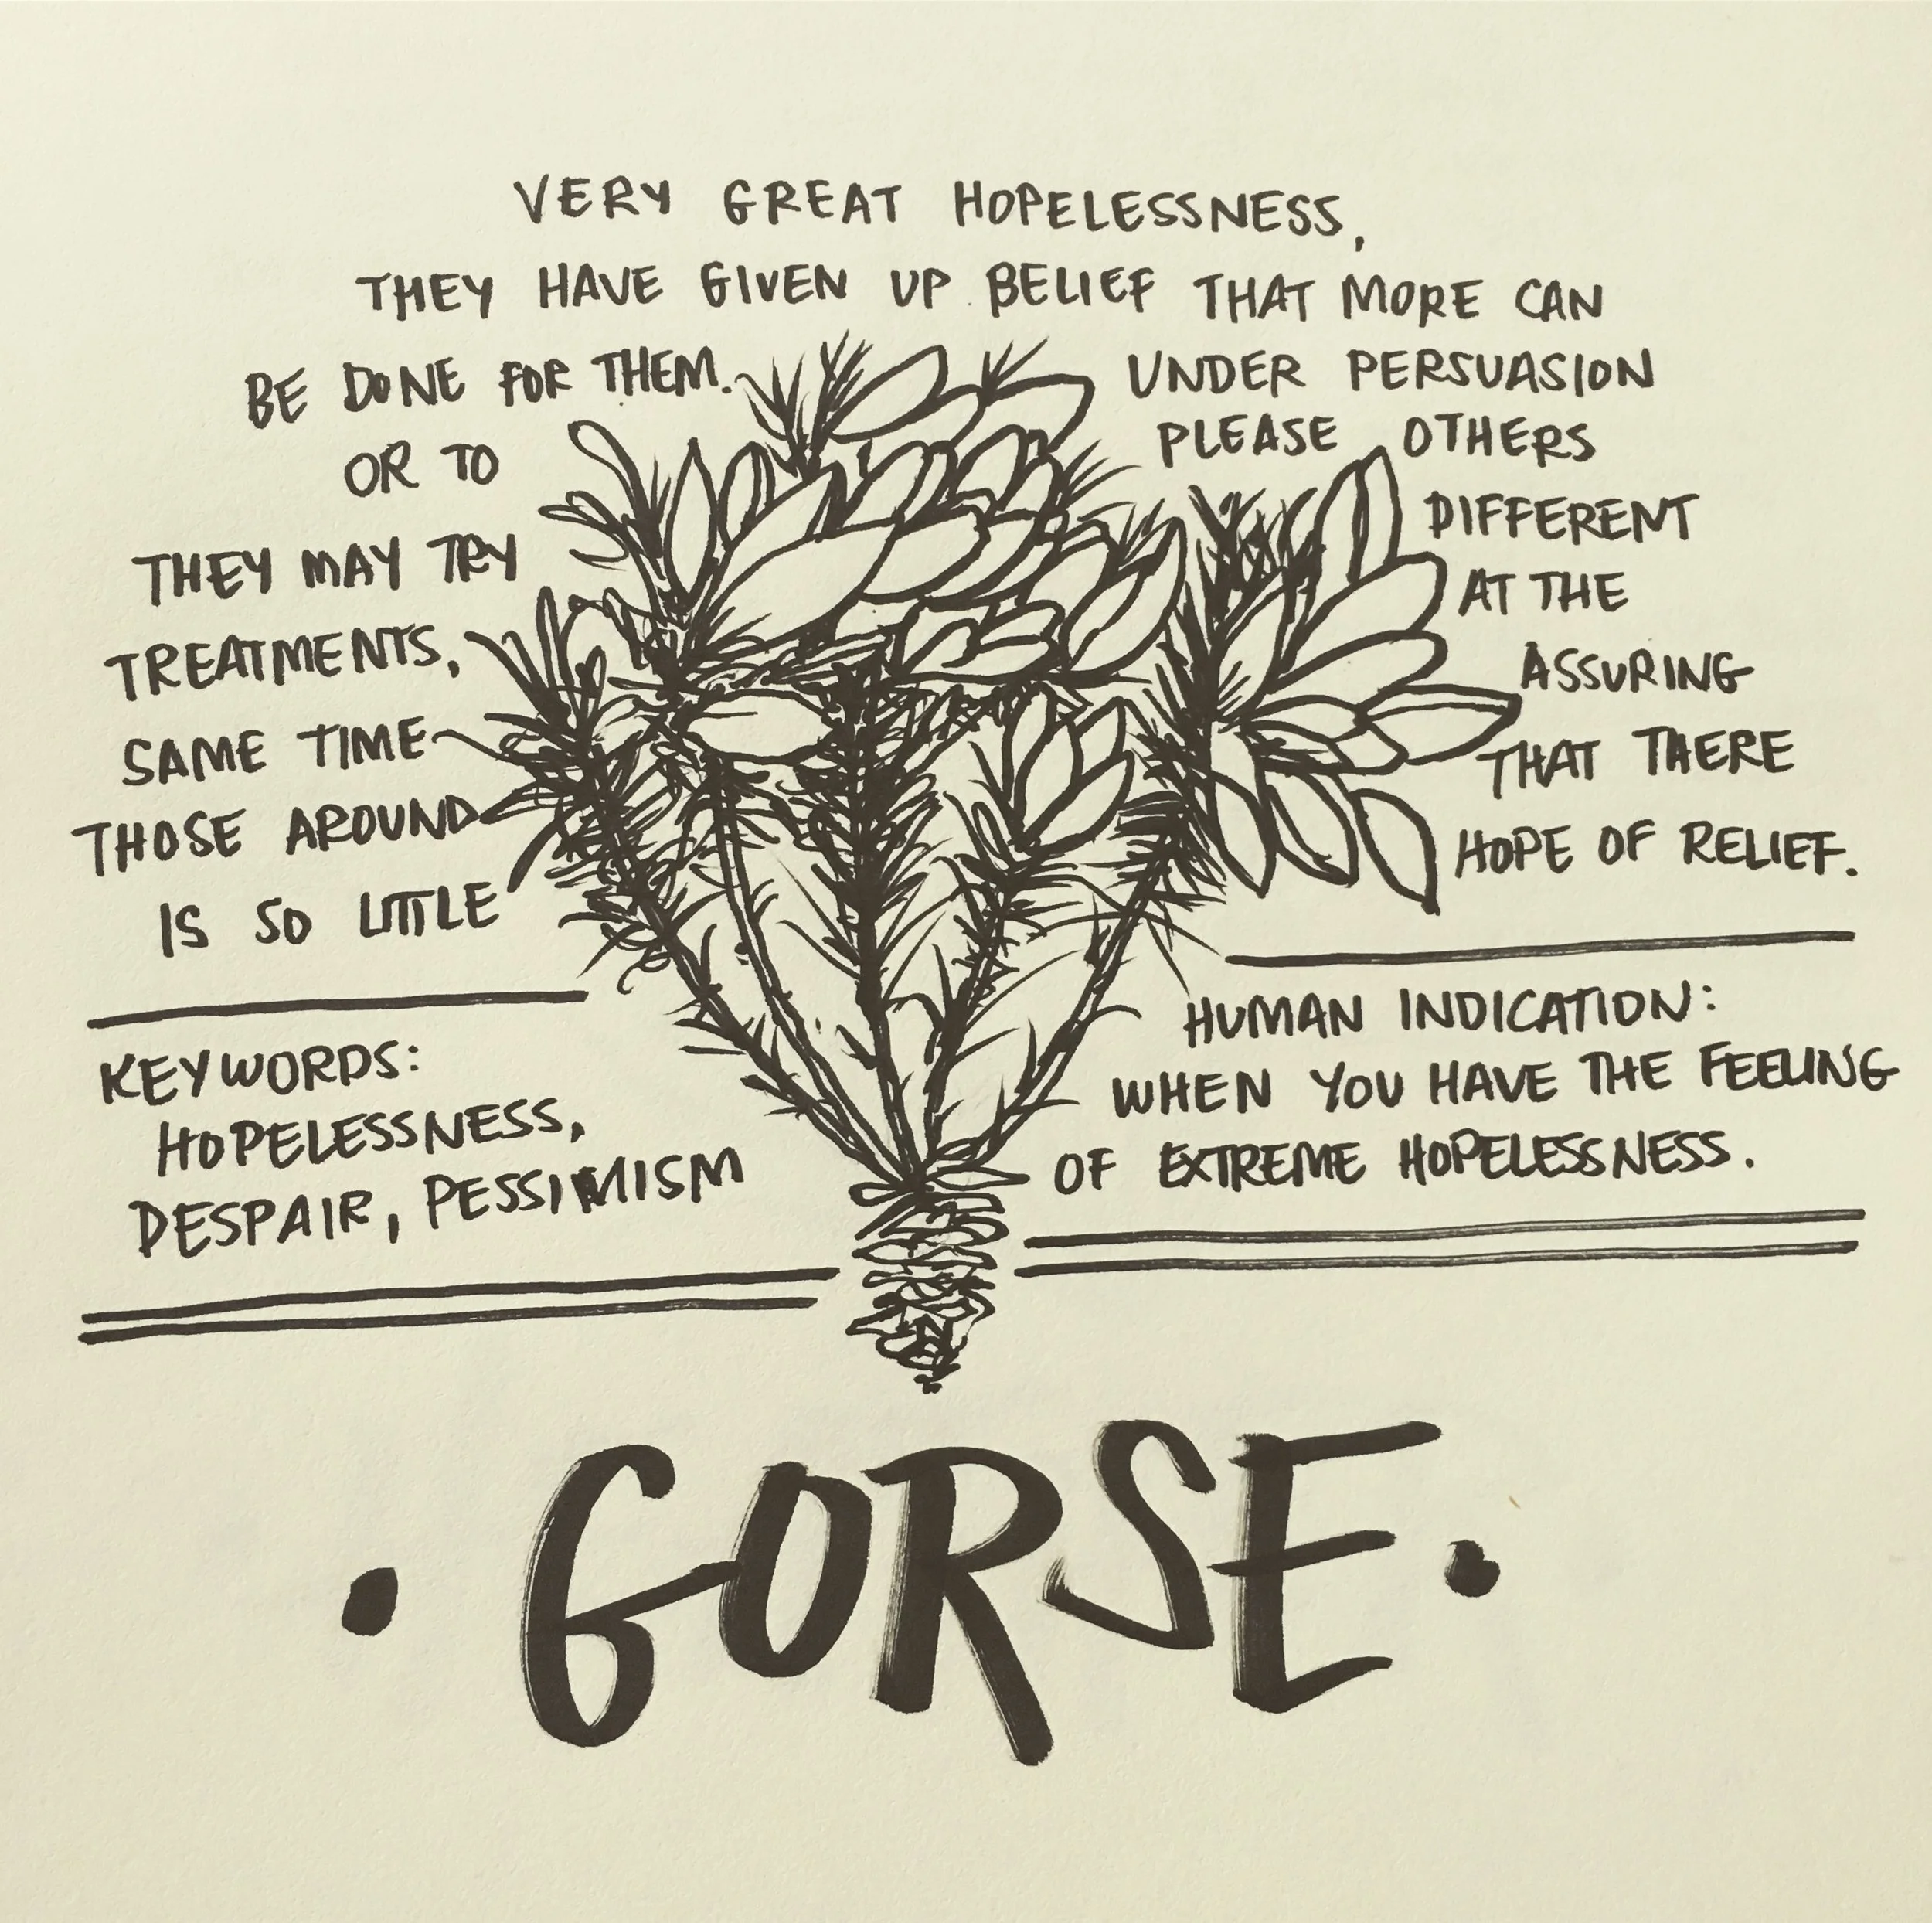 VERY GREAT HOPELESSNESS,
THEY HAVE GIVEN UP BELIEF THAT MORE CAN
BE DONE FOR THEM. UNDER PERSUASION
OR TO PLEASE OTHERS
THEY MAY TRY DIFFERENT
TREATMENTS, AT THE
SAME TIME ASSURING
THOSE AROUND THAT THERE
IS SO LITTLE HOPE OF RELIEF.
KEYWORDS:
HOPELESSNESS,
DESPAIR, PESSIMISM
HUMAN INDICATION:
WHEN YOU HAVE THE FEELING
OF EXTREME HOPELESSNESS.
• GORSE •